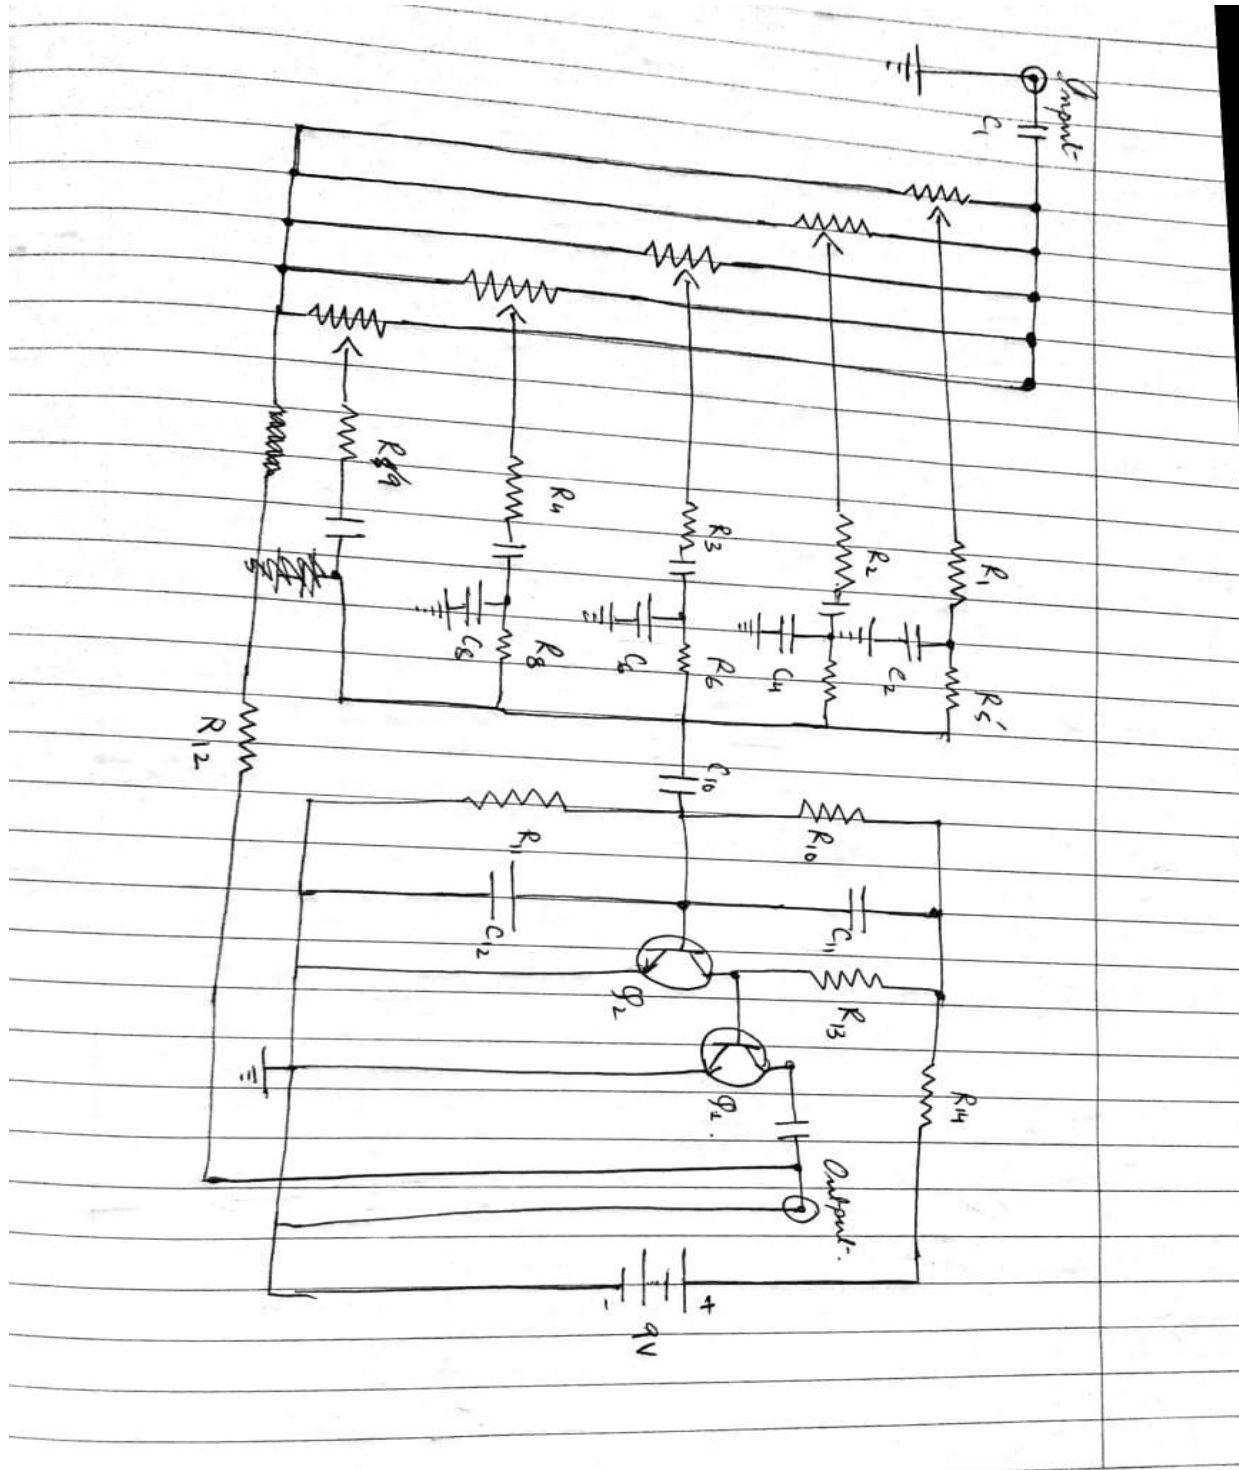 Input
C1
R1
R2
R3
R4
R9
C2
R5
C4
C6
R6
C8
R8
R12
C10
R10
R11
C11
C12
R13
Q2
Q1
R14
Output
+
-
9V